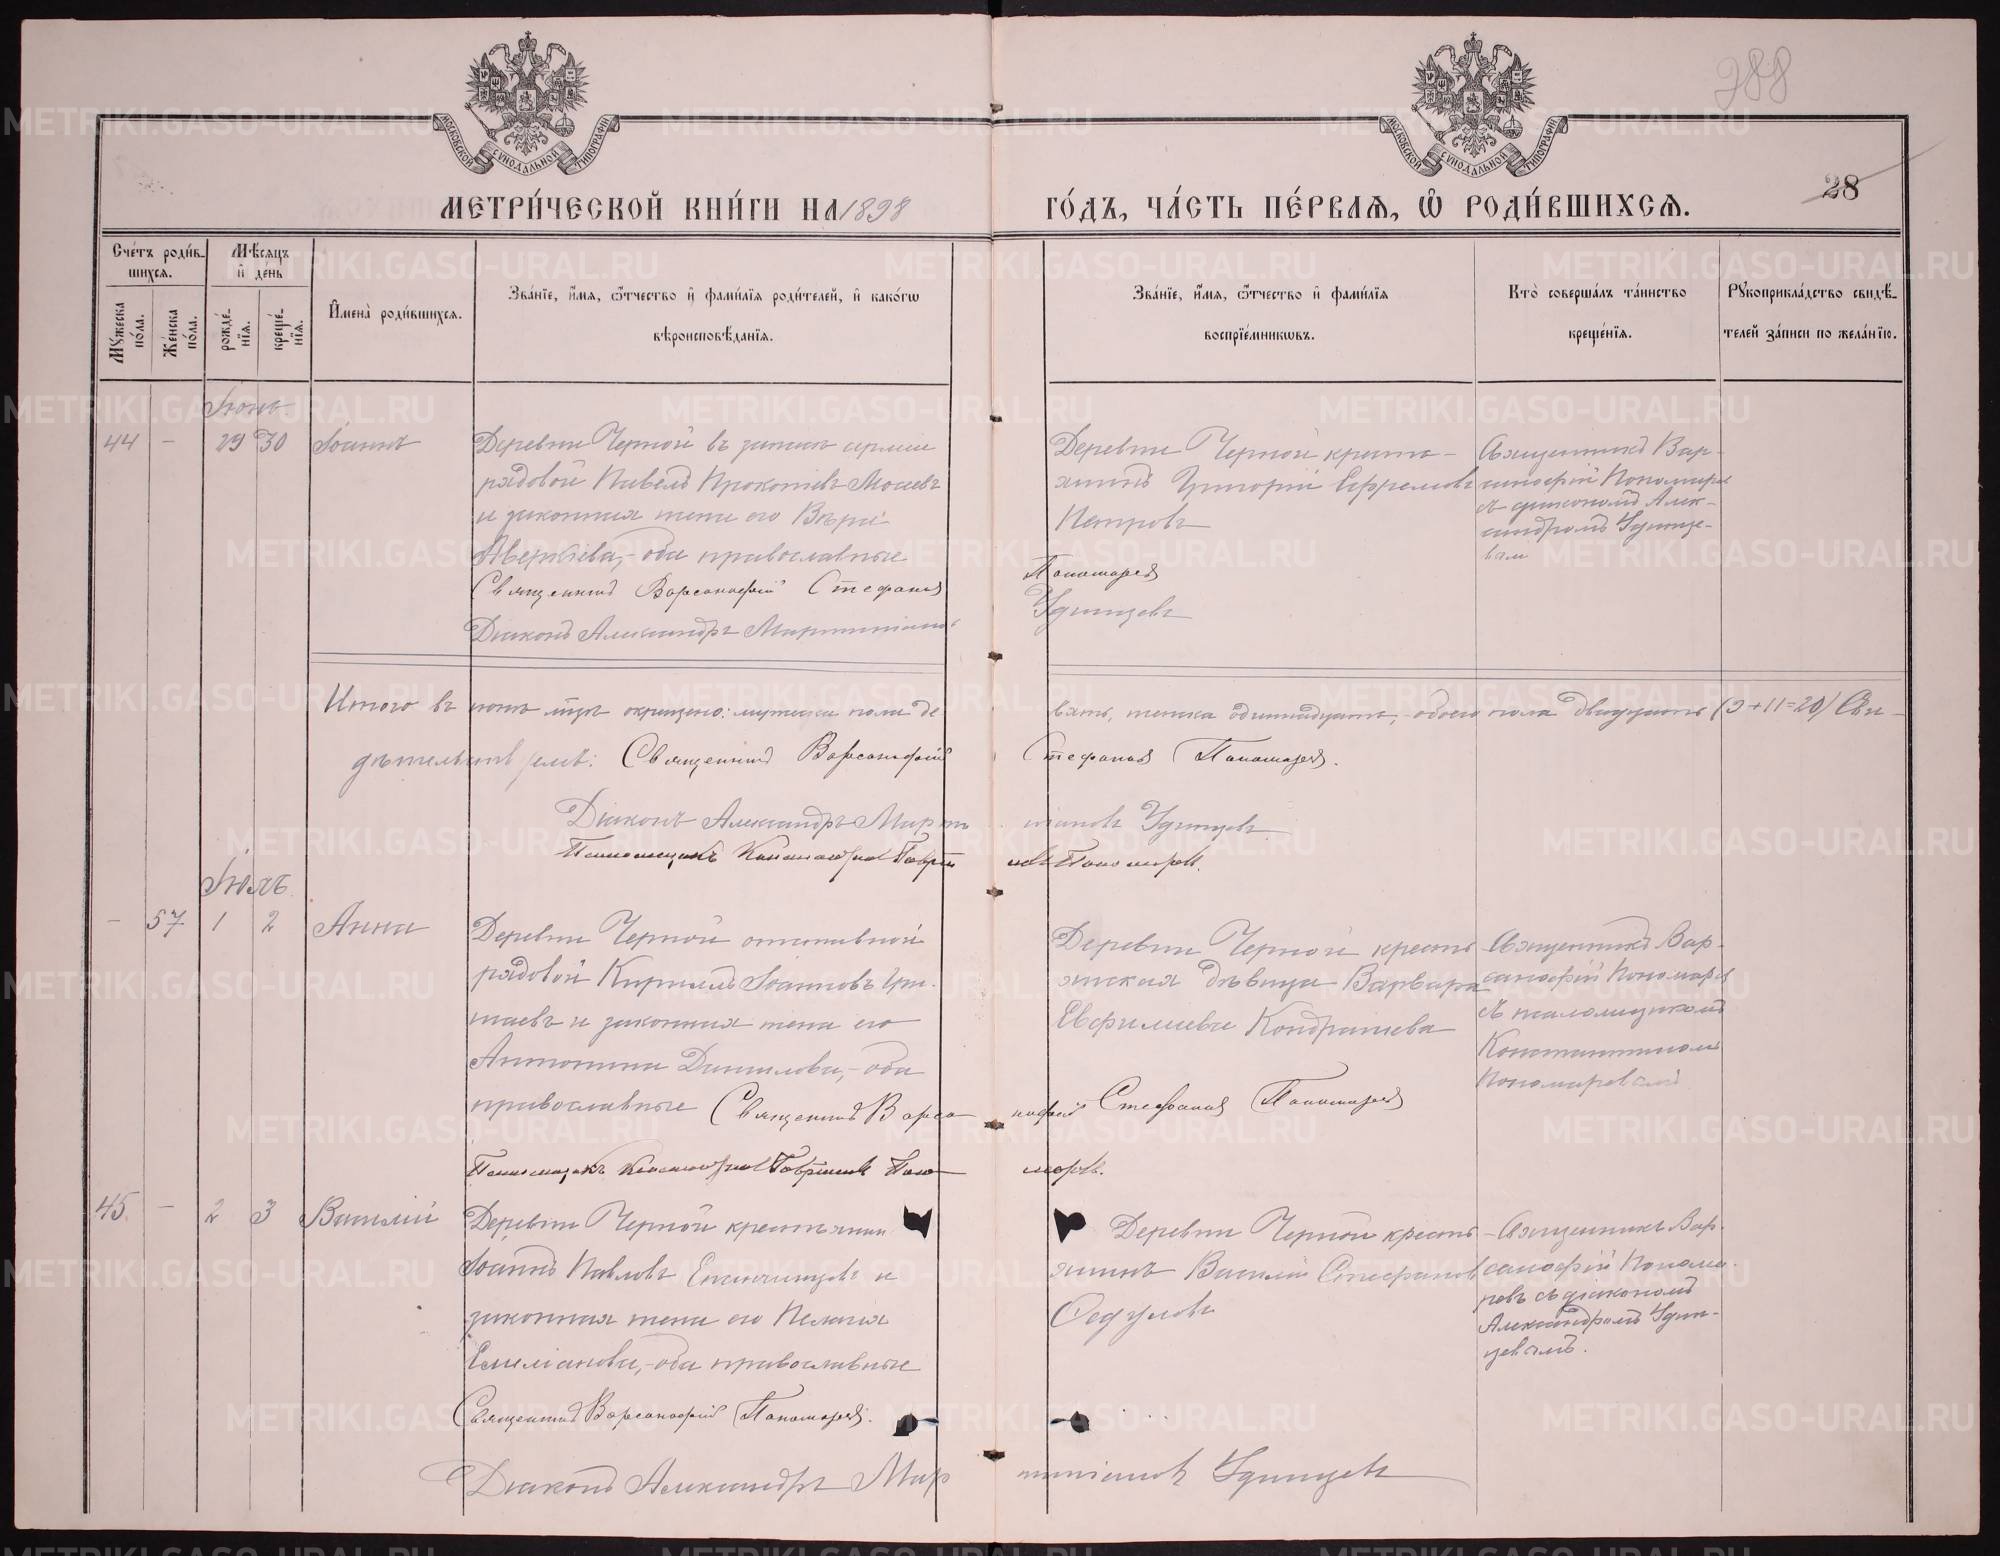 288
МОСКОВСКОЙ СѴНОДАЛЬНОЙ ТИПОГРАФІИ
МОСКОВСКОЙ СѴНОДАЛЬНОЙ ТИПОГРАФІИ
28
МЕТРИ́ЧЕСКОЙ КНИ́ГИ НА 1898
ГО́ДЪ, ЧА́СТЬ ПЕ́РВАЯ, Ѡ҆ РОДИ́ВШИХСЯ.
Сче́тъ роди́в-
шихся.
Мѣ́сяцъ
и҆ де́нь
Мꙋ́жеска по́ла.
Же́нска по́ла.
рожде́-
нїя.
креще́-
нїя.
И҆мена̀ роди́вшихся.
Зва́нїе, и҆́мя, ѻ҆́тчество и҆ фами́лїя роди́телей, и҆ како́гѡ
вѣроисповѣ́данїя.
Зва́нїе, и҆́мя, ѻ҆́тчество и҆ фами́лїя
воспрїе́мникѡвъ.
Кто̀ соверша́лъ та́инство
креще́нїя.
Рꙋкоприкла́дство свидѣ́-
телей за́писи по жела́нїю.
Іюнь
44 - 29 30 Іоаннъ
Деревни Черной въ запасѣ арміи
рядовой Павелъ Прокопіев Мосеевъ
и законная жена его Вѣра
Аверкіева,- оба православные
Священникъ Варсанофій Стефановъ
Діаконъ Александръ Мартиніано-
Деревни Черной кресть-
янинъ Григорій Ефремовъ
Петровъ
Пономаревъ
Удинцевъ
Священникъ Вар-
санофій Пономаревъ
съ діакономъ Алек-
сандромъ Удинце-
вым
Итого въ іюнѣ м-цѣ окрещено: мужеска пола де
вять, женска одиннадцать, обоего пола двадцать (9+11=20) Сви-
дѣтельств Священникъ Варсанофій
Стефановъ Пономаревъ.
Діаконъ Александръ Марти
ніановъ Удинцевъ
Псаломщикъ Константинъ Гаврiи
ловъ Пономаревъ.
Іюль
- 57 1 2 Анна
Деревни Черной отставной
рядовой Кириллъ Іоанновъ Гри-
шаевъ и законная жена его
Антонина Данилова,- оба
православные Священникъ Варса
Псаломщикъ Константинъ Гавріиловъ Поно
Деревни Черной кресть
янская дѣвица Варвара
Евфимиева Кондрашева
нофій Стефановъ Пономаревъ
маревъ.
Священникъ Вар-
санофій Пономаревъ
съ псаломщикомъ
Константиномъ
Пономаревымъ
45. - 2 3 Василій
Деревни Черной крестьянин
Іоаннъ Павловъ Епанчинцевъ и
законная жена его Пелагія
Емиліанова,- оба православные
Священникъ Варсанофій Пономаревъ.
Діаконъ Александръ Мар
Деревни Черной кресть-
янинъ Василій Стефановъ
Седуловъ
тиніановъ Удинцевъ
Священникъ Вар-
санофій Понома-
ревъ съ діакономъ
Александромъ Удин-
цевымъ.
METRIKI.GASO-URAL.RU